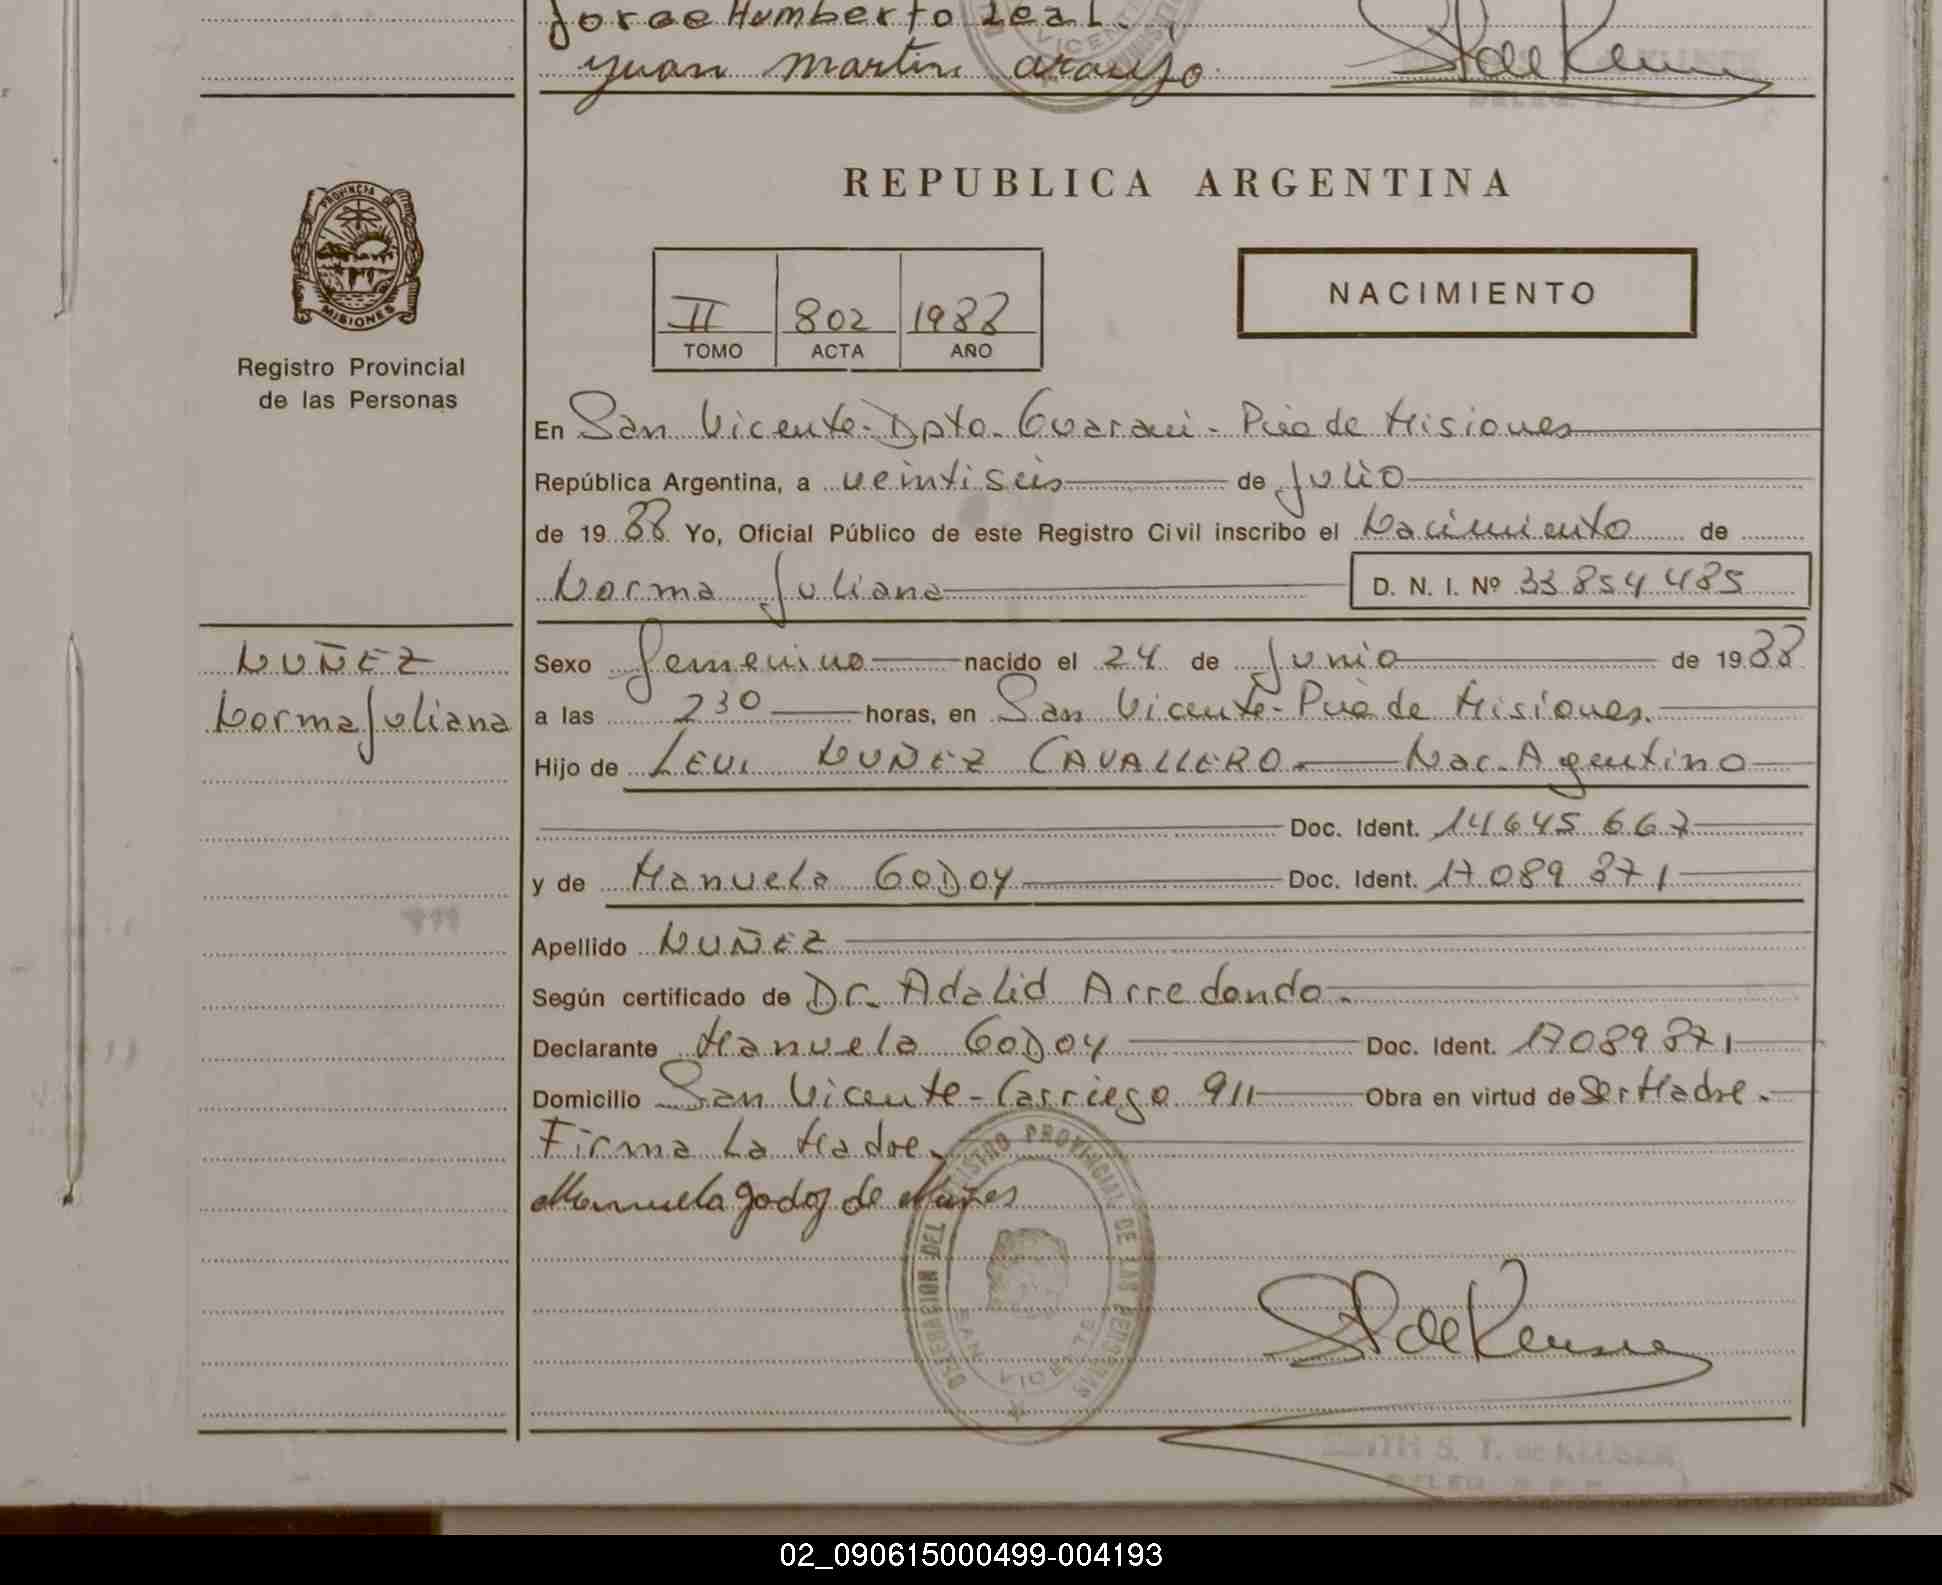 Jorge Humberto Leal.
Juan Martin Araujo
REPUBLICA ARGENTINA
PROVINCIA DE
MISIONES
Registro Provincial
de las Personas
II 802 1988
TOMO ACTA AÑO
NACIMIENTO
En San Vicente-Dpto. Guarani-Pcia de Misiones
República Argentina, a veintiseis de Julio
de 1988 Yo, Oficial Público de este Registro Civil inscribo el Nacimiento de
Norma Juliana D. N. I. Nº 33.854.485
NUÑEZ
Norma Juliana
Sexo Femenino nacido el 24 de Junio de 1988
a las 230 horas, en San Vicente-Pcia de Misiones.
Hijo de LEVI NUÑEZ CAVALLERO.- Nac. Agentino
Doc. Ident. 14.645.667
y de Manuela GODOY Doc. Ident. 17.089.871
Apellido NUÑEZ
Según certificado de Dr. Adalid Arredondo.
Declarante Manuela GODOY Doc. Ident. 17089871
Domicilio San Vicente-Carriego 911 Obra en virtud de Ser Madre.
Firma La Madre.
Manuela godoy de Nuñes
DELEGACION DEL REGISTRO PROVINCIAL DE LAS PERSONAS
SAN VICENTE
02_090615000499-004193